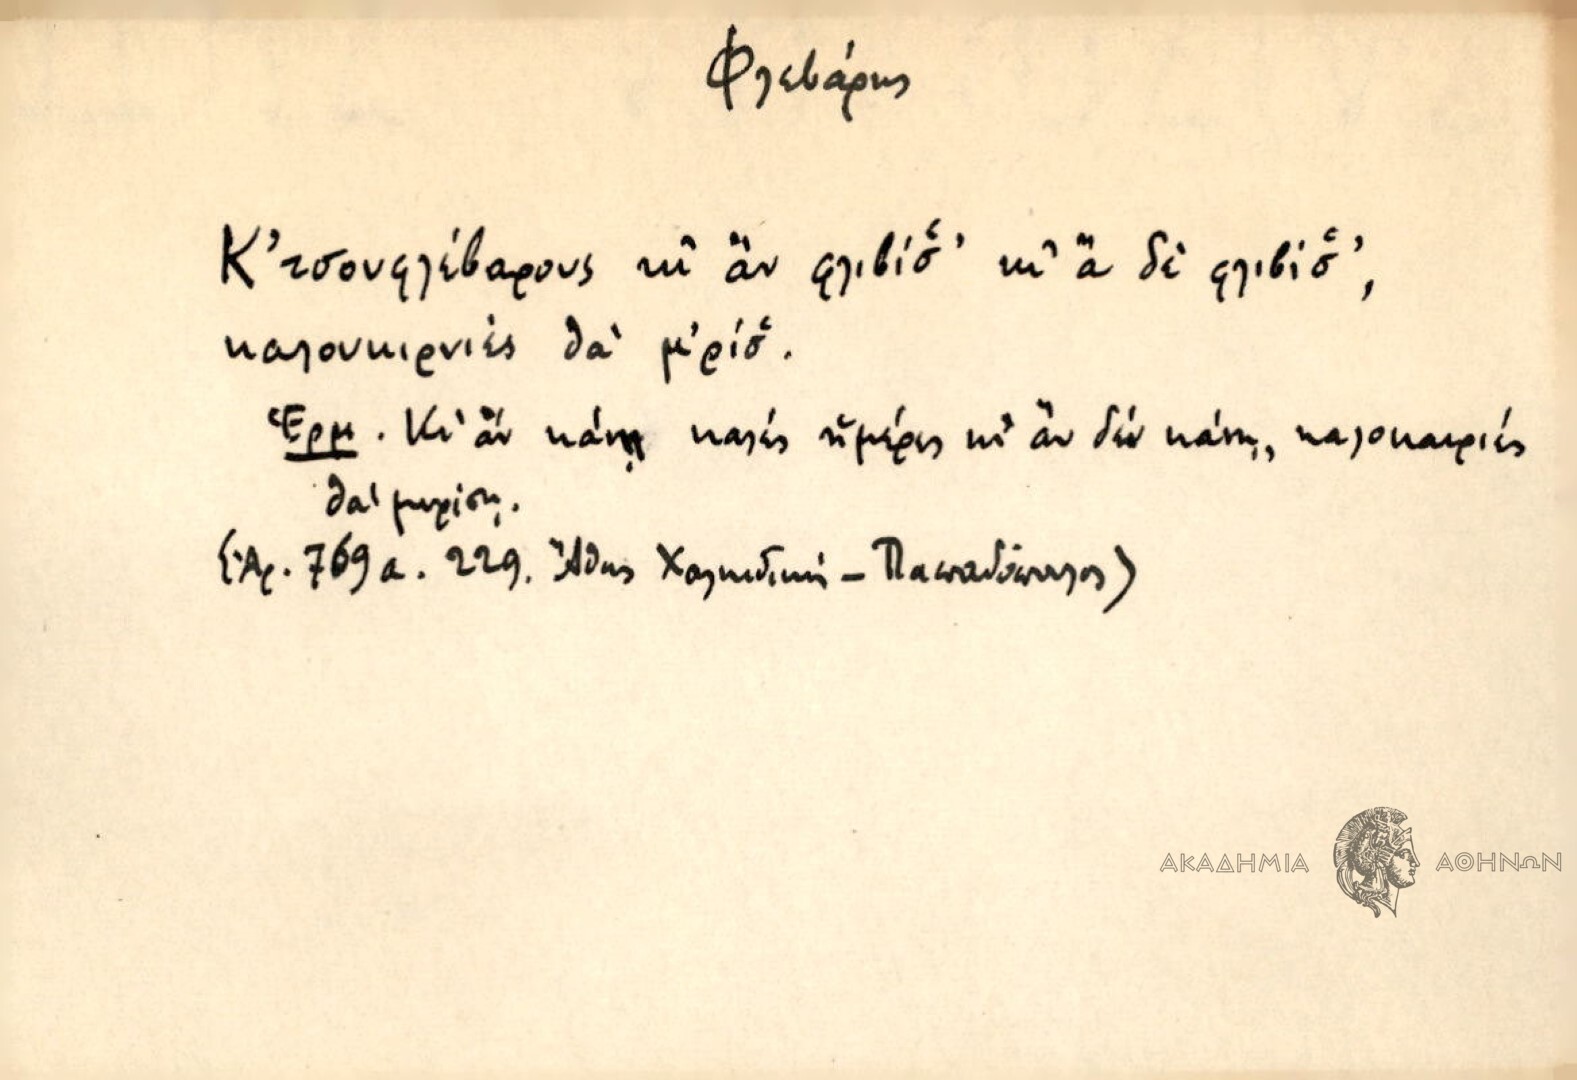 Φλεβάρης
Κ'τσουφλέβαρους κὶ ἂν φλιβίσ̌' κὶ ἂ δὲ φλιβίσ̌',
καλουκιρνιές θὰ μ'ρίσ̌.
Ἑρμ. Κι' ἂν κάνῃ καλές ἡμέρες κι' ἂν δέν κάνῃ, καλοκαιριές
θὰ μυρίσῃ.
(Ἀρ. 769 α. 229. Ἄθως Χαλκιδική – Παπαδόπουλος)
ΑΚΑΔΗΜΙΑ ΑΘΗΝΩΝ